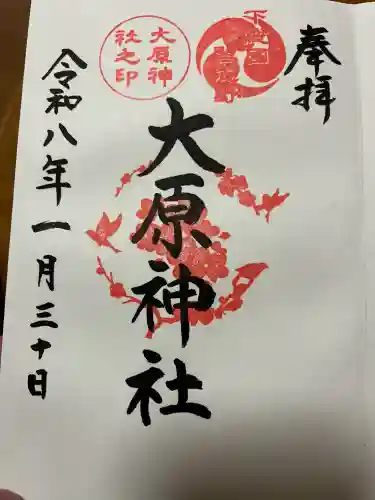 奉拝
大原神社
令和八年一月三十日
大原神
社之印
下総国